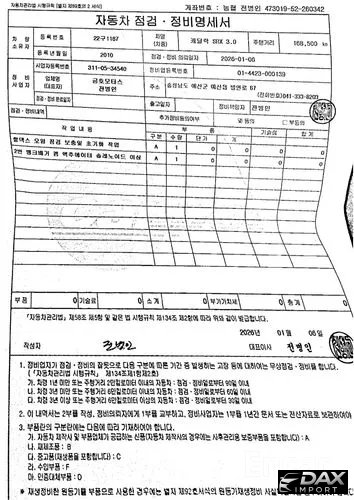 자동차관리법 시행규칙 [별지 제89호의 2 서식]
계좌번호 : 농협 전병민 473019-52-260342
자동차 점검 · 정비명세서
차량 소유자
등록번호 22구1187 차명(차종) 캐딜락 SRX 3.0 주행거리 168,500 km
등록년도 2010 점검 · 정비 의뢰일자 2026-01-05
정비사업자
사업자등록번호 311-05-34540 정비업등록번호 01-4423-000139
업체명(대표자) 금호모터스 전병민 주소 충청남도 예산군 예산읍 벚꽃로 67 (전화번호)041-333-8203
점검 · 정비 완료일자 출고일자 정비책임자 전병민
점검 · 정비내역 추가정비동의여부 동의 부동의
작 업 내 용 부 품 기술료 합계
구분 수량 단가 계
2번 뱅크배기 캠 액추에이터 솔레노이드 이상 A 1 0 0 0 0
부품 0 기술료 0 소계 0 부가가치세 0 총계 0
「자동차관리법」 제58조 제5항 및 같은 법 시행규칙 제134조 제2항에 따라 위와 같이 발급합니다.
2026년 01월 06일
작성자 전병민 대표이사 전병민
1. 정비업자가 점검 · 정비의 잘못으로 다음 구분에 따른 기간 중 발생하는 고장 등에 대하여는 무상점검 · 정비를 합니다.
(「자동차관리법 시행규칙」 제134조제1항제2호)
가. 차령 1년 미만 또는 주행거리 2만킬로미터 이내의 자동차 : 점검 · 정비일로부터 90일 이내
나. 차령 3년 미만 또는 주행거리 6만킬로미터 이내의 자동차 : 점검 · 정비일로부터 60일 이내
다. 차령 3년 이상 또는 주행거리 6만킬로미터 이상의 자동차 : 점검 · 정비일로부터 30일 이내
2. 이 내역서는 2부를 작성, 정비의뢰자에게 1부를 교부하고, 정비사업자는 1부를 1년간 문서 또는 전산자료로 보관하여야
3. 부품란의 구분란에는 다음에 따라 기재하여야 합니다.
가. 자동차 제작사 및 부품업체가 공급하는 신품(자동차 제작사의 경우에는 사후관리용 보증부품을 포함합니다) : A
나. 재제조품 : B
다. 중고품(재생품을 포함합니다) : C
라. 수입부품 : F
마. 인증대체부품 : D
※ 재생정비한 원동기를 부품으로 사용한 경우에는 별지 제92호서식의 원동기재생정비 사실
DAX
IMPORT